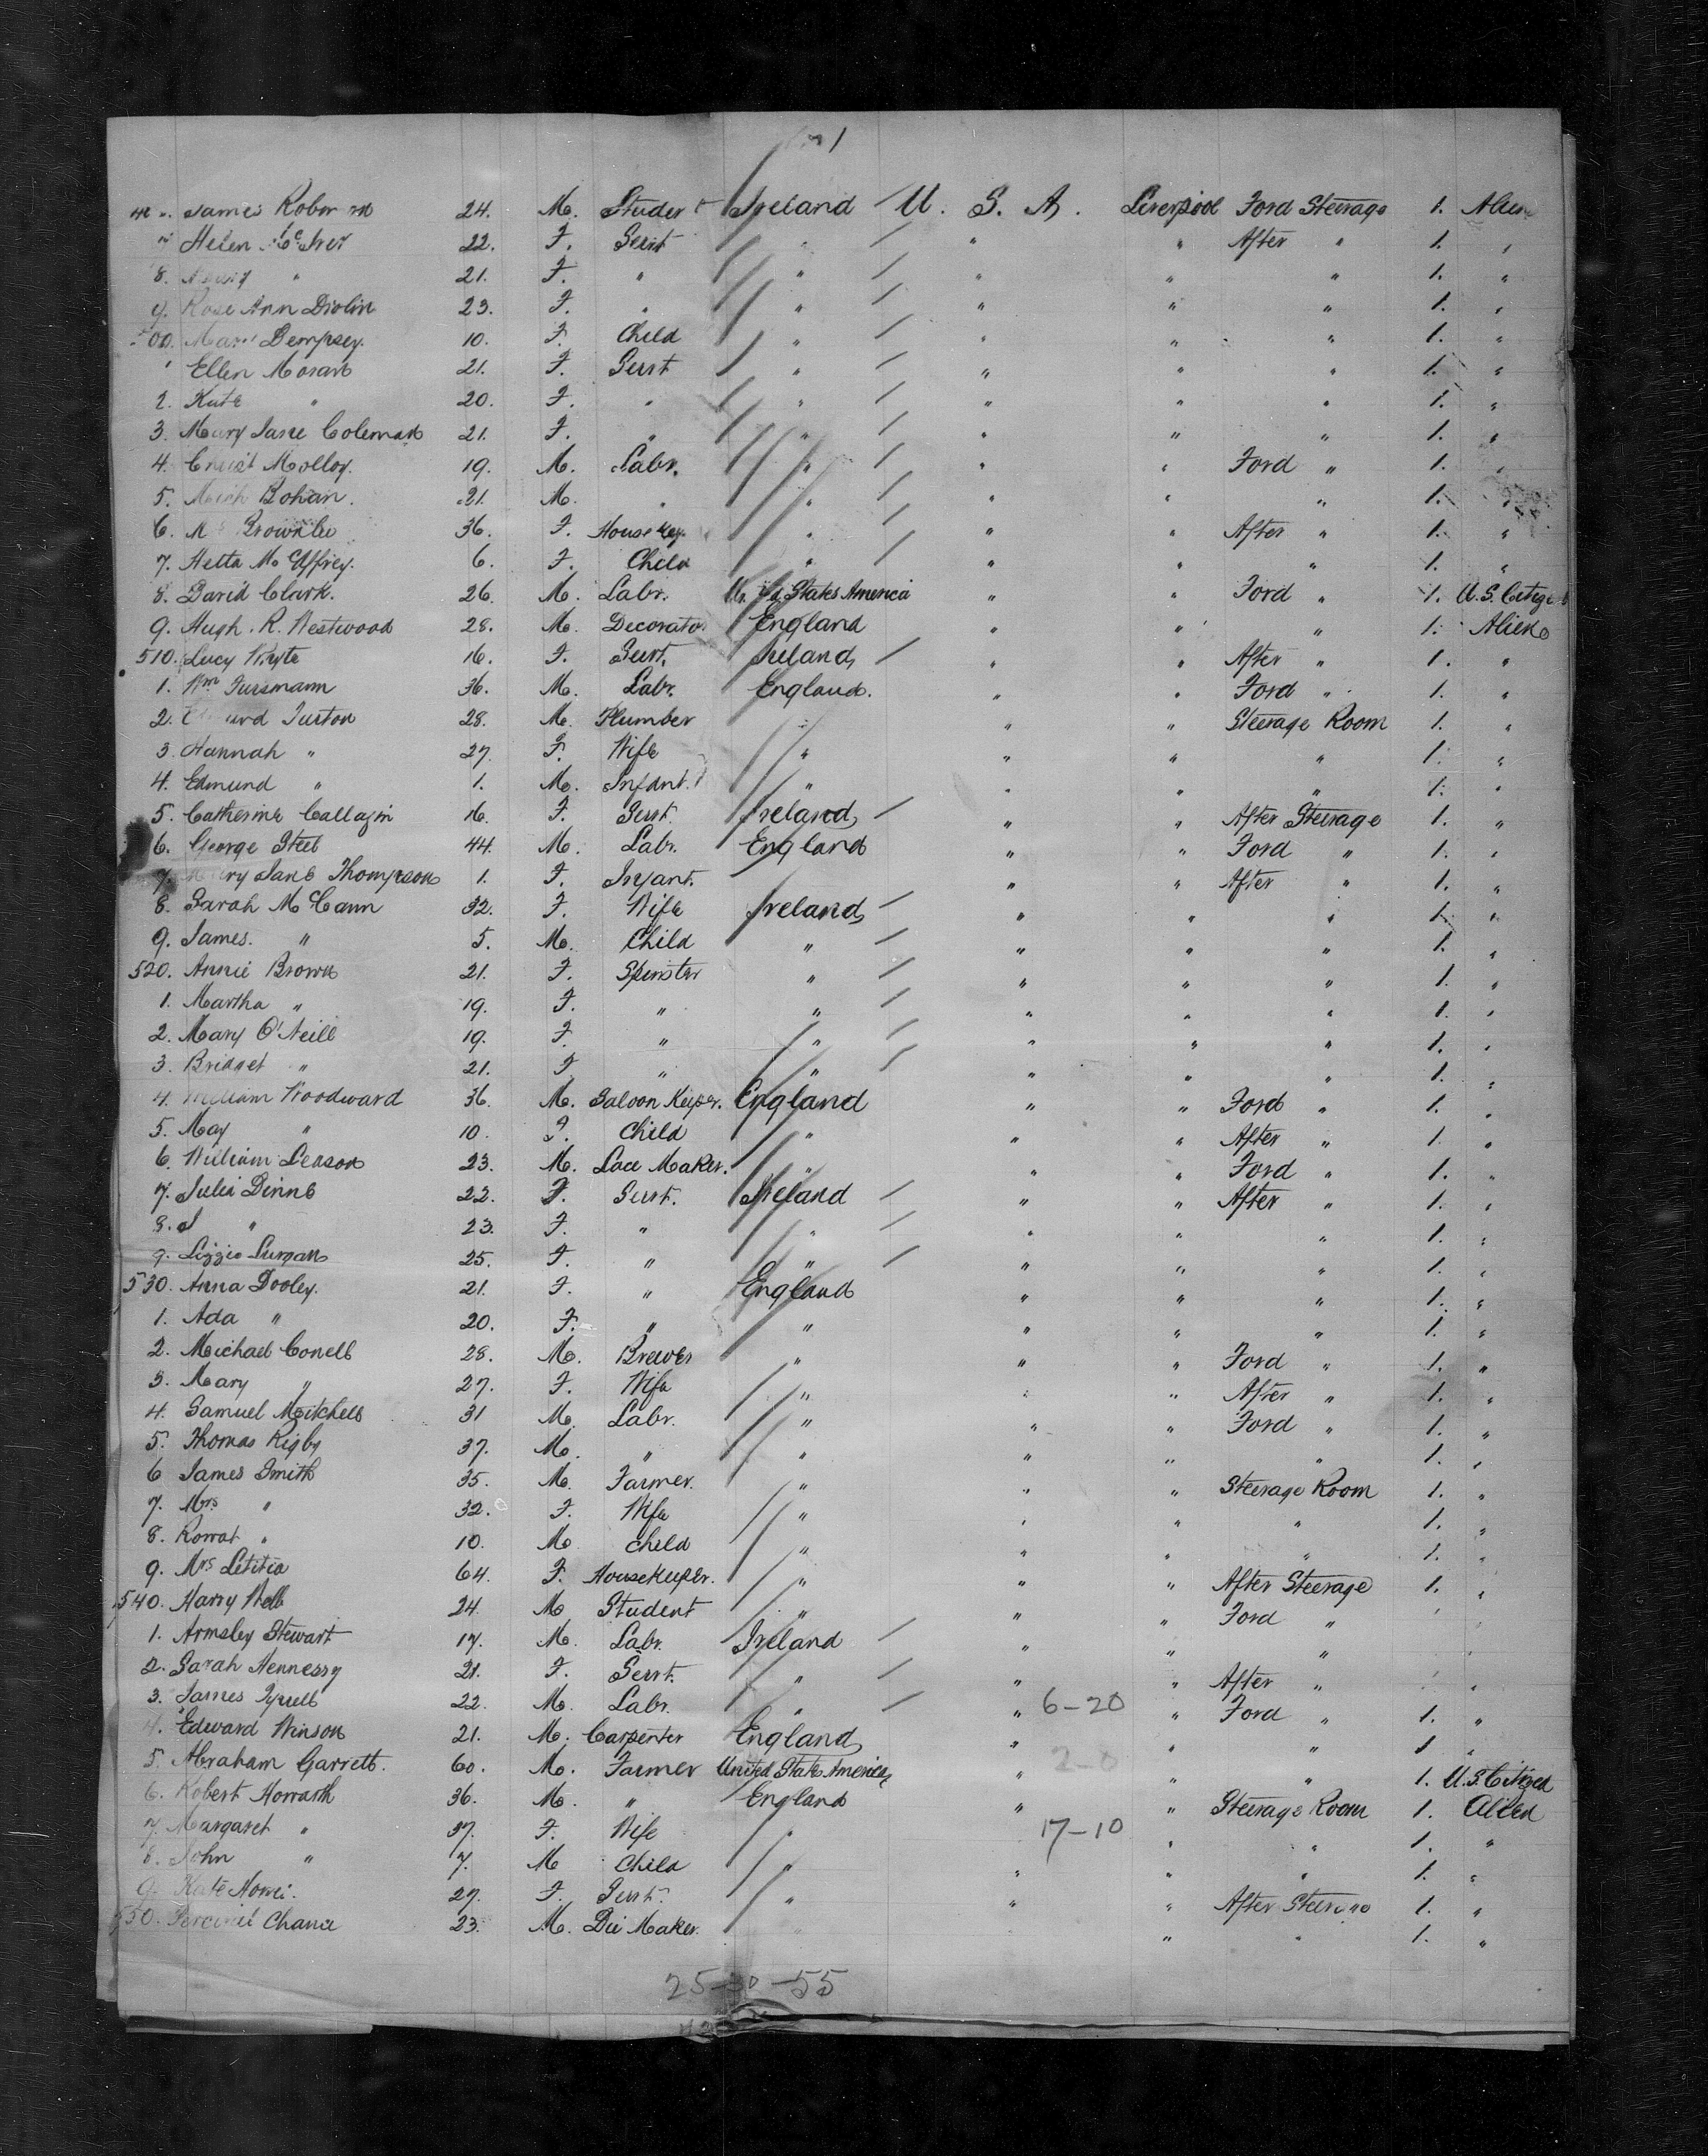 James 24. M. Student Ireland U. S. A. Liverpool Ford Steerage 1. Alien
Helen 22. F. Servt " " " After " 1. "
8. " 21. F. " " " " " 1. "
9. Rose Ann Diolin 23. F. " " " " " 1. "
500. Mary Dempsey. 10. F. Child " " " " 1. "
Ellen Moran 21. F. Servt " " " " 1. "
2. Kate " 20. F. " " " " " 1. "
3. Mary Jane Coleman 21. F. " " " " " 1. "
4. Molloy. 19. M. Labr. " " " Ford " 1. "
5. Bohan. 21. M. " " " " " 1. "
6. Brownlee 36. F. " " " After " 1. "
7. Hetta Mc Caffrey. 6. F. Child " " " " 1. "
8. David Clark. 26. M. Labr. States America " " Ford " 1. U.S. Citizen
9. Hugh. R. Westwood 28. M. Decorator England " " " 1. Alien
510. Lucy Whyte 16. F. Servt. Ireland " " After " 1. "
1. Wm Fursmann 36. M. Labr. England. " " Ford " 1. "
2. Turton 28. M. Plumber " " " Steerage Room 1. "
3. Hannah " 27. F. Wife " " " " 1. "
4. Edmund " 1. M. Infant. " " " " 1. "
5. Catherine Callagin 16. F. Servt. Ireland " " After Steerage 1. "
6. George Steel 44. M. Labr. England " " Ford " 1. "
7. Mary Jane Thompson 1. F. Infant. " " After " 1. "
8. Sarah Mc Cann 32. F. Wife Ireland " " " 1. "
9. James. " 5. M. Child " " " " 1. "
520. Annie Brown 21. F. Spinster " " " " 1. "
1. Martha " 19. F. " " " " " 1. "
2. Mary O'Neill 19. F. " " " " " 1. "
3. Bridget " 21. F " " " " " 1. "
4. William Woodward 36. M. Saloon Keeper. England " " Ford " 1. "
5. May " 10. F. Child " " " After " 1. "
6. William Leason 23. M. Lace Maker. " " " Ford " 1. "
7. Julia Dinne 22. F. Servt. Ireland " " After " 1. "
8. " 23. F. " " " " " 1. "
9. Lizzie 25. F. " " " " " 1. "
530. Anna Dooley. 21. F. " England " " " 1. "
1. Ada " 20. F. " " " " " 1. "
2. Michael Conell 28. M. Brewer " " " Ford " 1. "
3. Mary " 27. F. Wife " " " After " 1. "
4. Samuel Mitchell 31 M. Labr. " " " Ford " 1. "
5. Thomas Rigby 37. M. " " " " " 1. "
6. James Smith 35. M. Farmer. " " " Steerage Room 1. "
7. Mrs " 32. F. Wife " " " " 1. "
8. Rowat " 10. M. Child " " " " 1. "
9. Mrs Letitia 64. F. Housekeeper. " " " After Steerage 1. "
540. Harry Webb 24. M Student " " " Ford " "
1. Armsley Stewart 17. M. Labr. Ireland " " " "
2. Sarah Hennessy 21. F. Servt. " " " After " "
3. James Tyrrell 22. M. Labr. " " 6-20 " Ford " 1. "
4. Edward Winson 21. M. Carpenter England " " " 1 "
5. Abraham Garrett. 60. M. Farmer United States America " 2-0 " " 1. U.S. Citizen
6. Robert Howarth 36. M. " England " " Steerage Room 1. Alien
7. Margaret " 37. F. Wife " 17-10 " " 1. "
8. John " 7. M Child " " " " 1. "
9. Kate 27. F. Servt. " " " After Steerage 1. "
550. Chance 23. M. Die Maker. " " " " 1. "
25-30-55